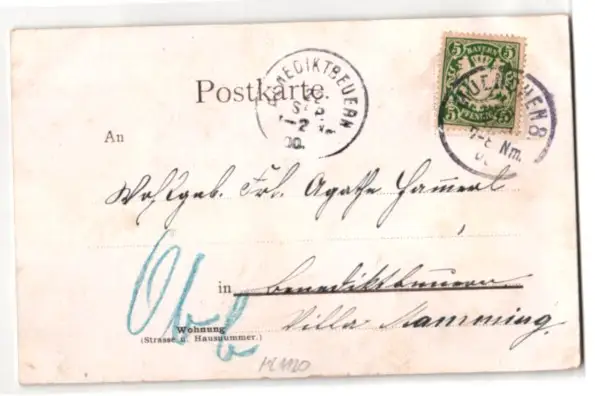 Postkarte.
BENEDIKTBEUERN
SEP
00.
5 BAYERN 5
5 PFENNIG 5
MUENCHEN 8.
7-8 Nm.
An
Wohlgeb. Frl. Agathe Hammerl
in Benediktbeuern
Villa Mamming
Obb
Wohnung
(Strasse u. Hausnummer.)